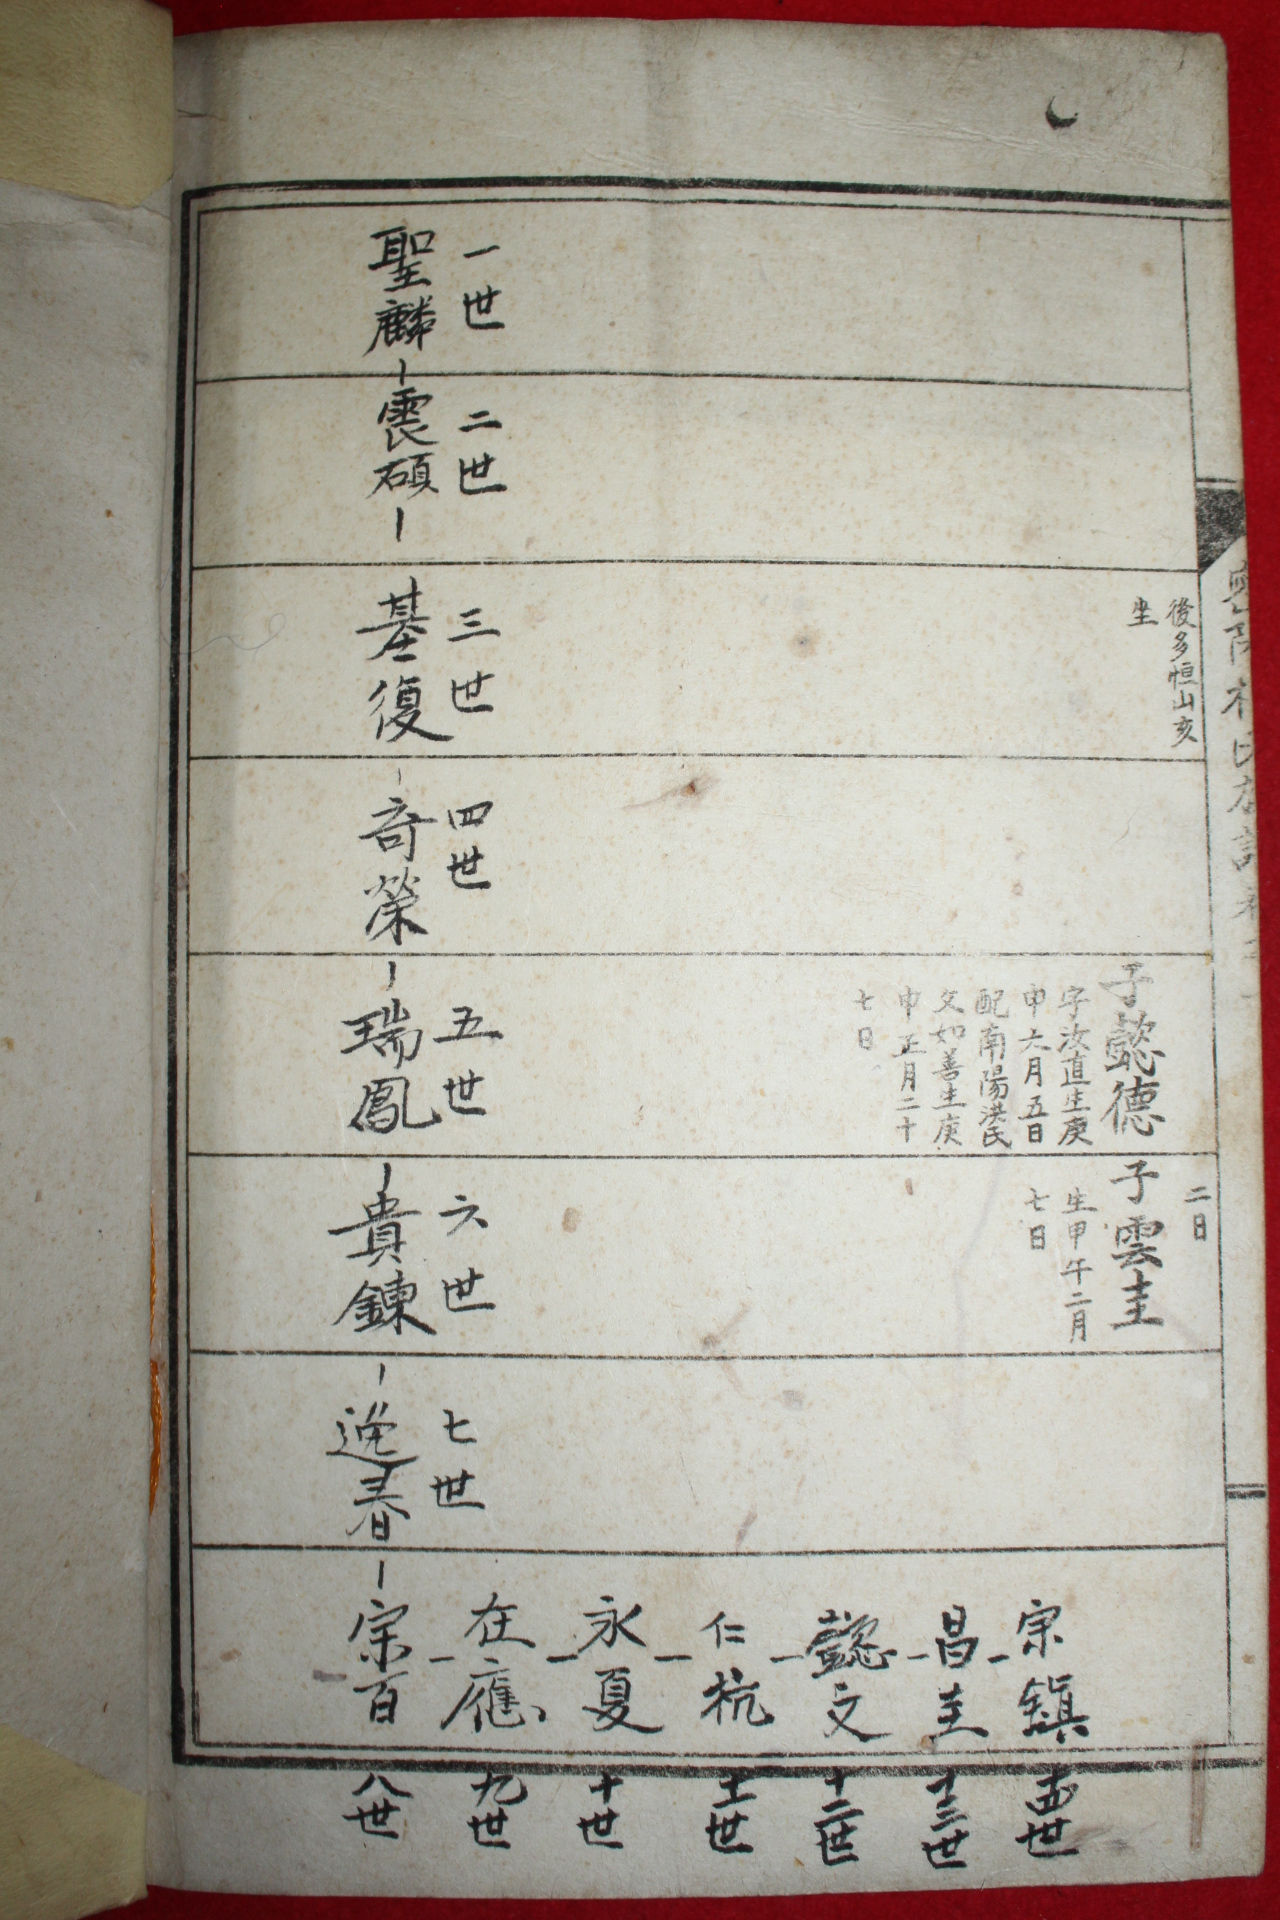 後多恒山亥
坐
子懿德
字汝直生庚
申六月五日
配南陽洪氏
父如善生庚
申正月二十
七日
二日
子雲圭
生甲午二月
七日
一世
聖麟
二世
震碩
三世
基復
四世
奇榮
五世
瑞鳳
六世
貴鍊
七世
逸春
宗百
八世
在應
九世
永夏
十世
仁杭
十一世
懿文
十二世
昌圭
十三世
宗鎭
十四世